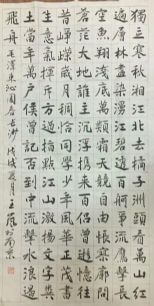 獨立寒秋湘江北去橘子洲頭看萬山紅
遍層林盡染漫江碧透百舸爭流鷹擊長
空魚翔淺底萬類霜天競自由悵寥廓問
蒼茫大地誰主沉浮攜來百侶曾遊憶往
昔崢嶸歲月稠恰同學少年風華正茂書
生意氣揮斥方遒指點江山激揚文字糞
土當年萬戶侯曾記否到中流擊水浪遏
飛舟 毛澤東沁園春長沙 戊戌 月王 於南京